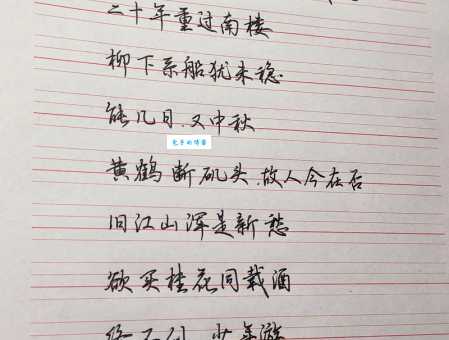 二十年重过南楼
柳下系船犹未稳
能几日.又中秋
黄鹤断矶头.故人今在否
旧江山浑是新愁
欲买桂花同载酒
终不似.少年游